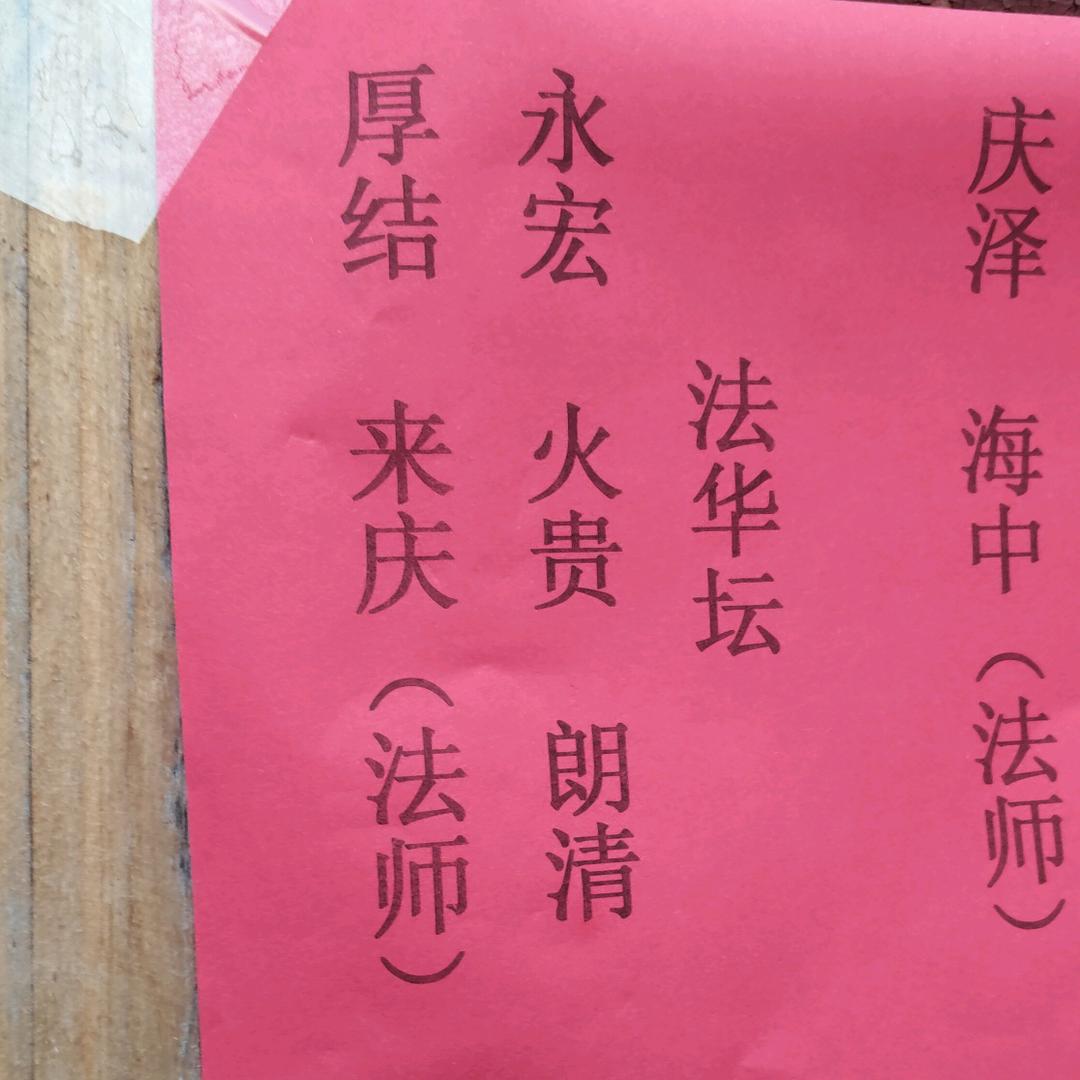 庆泽 海中（法师）
法华坛
永宏 火贵 朗清
厚结 来庆（法师）